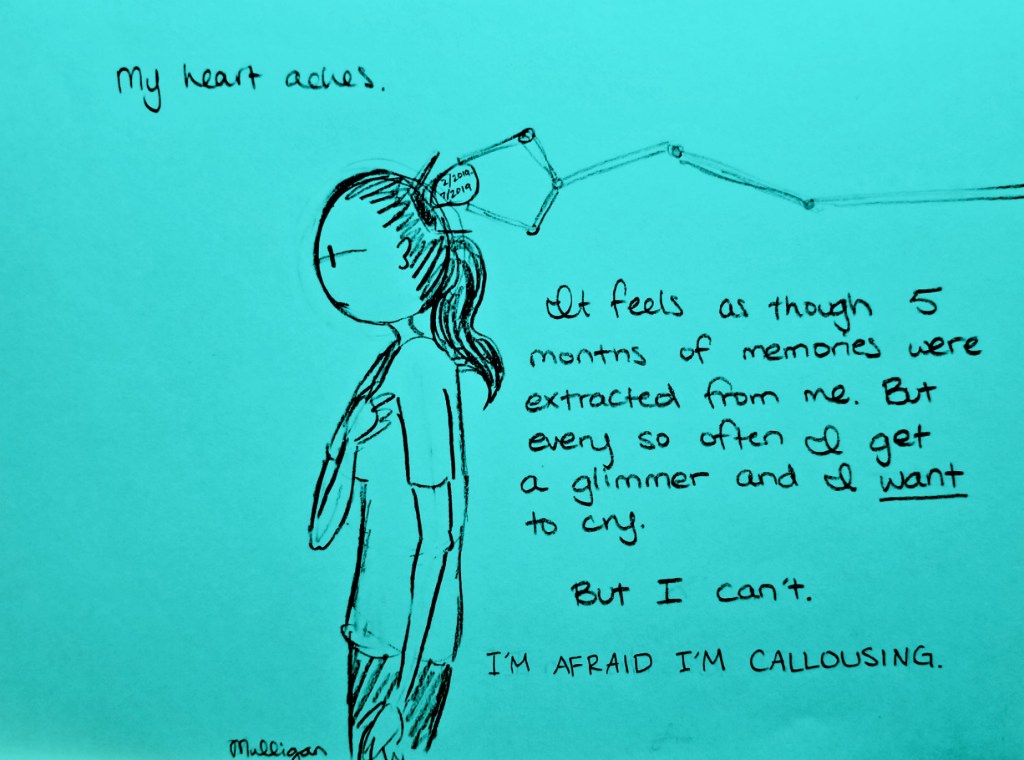 My heart aches.
2/2019
7/2019
It feels as though 5
months of memories were
extracted from me. But
every so often I get
a glimmer and I want
to cry.
But I can't.
I'M AFRAID I'M CALLOUSING.
Mulligan